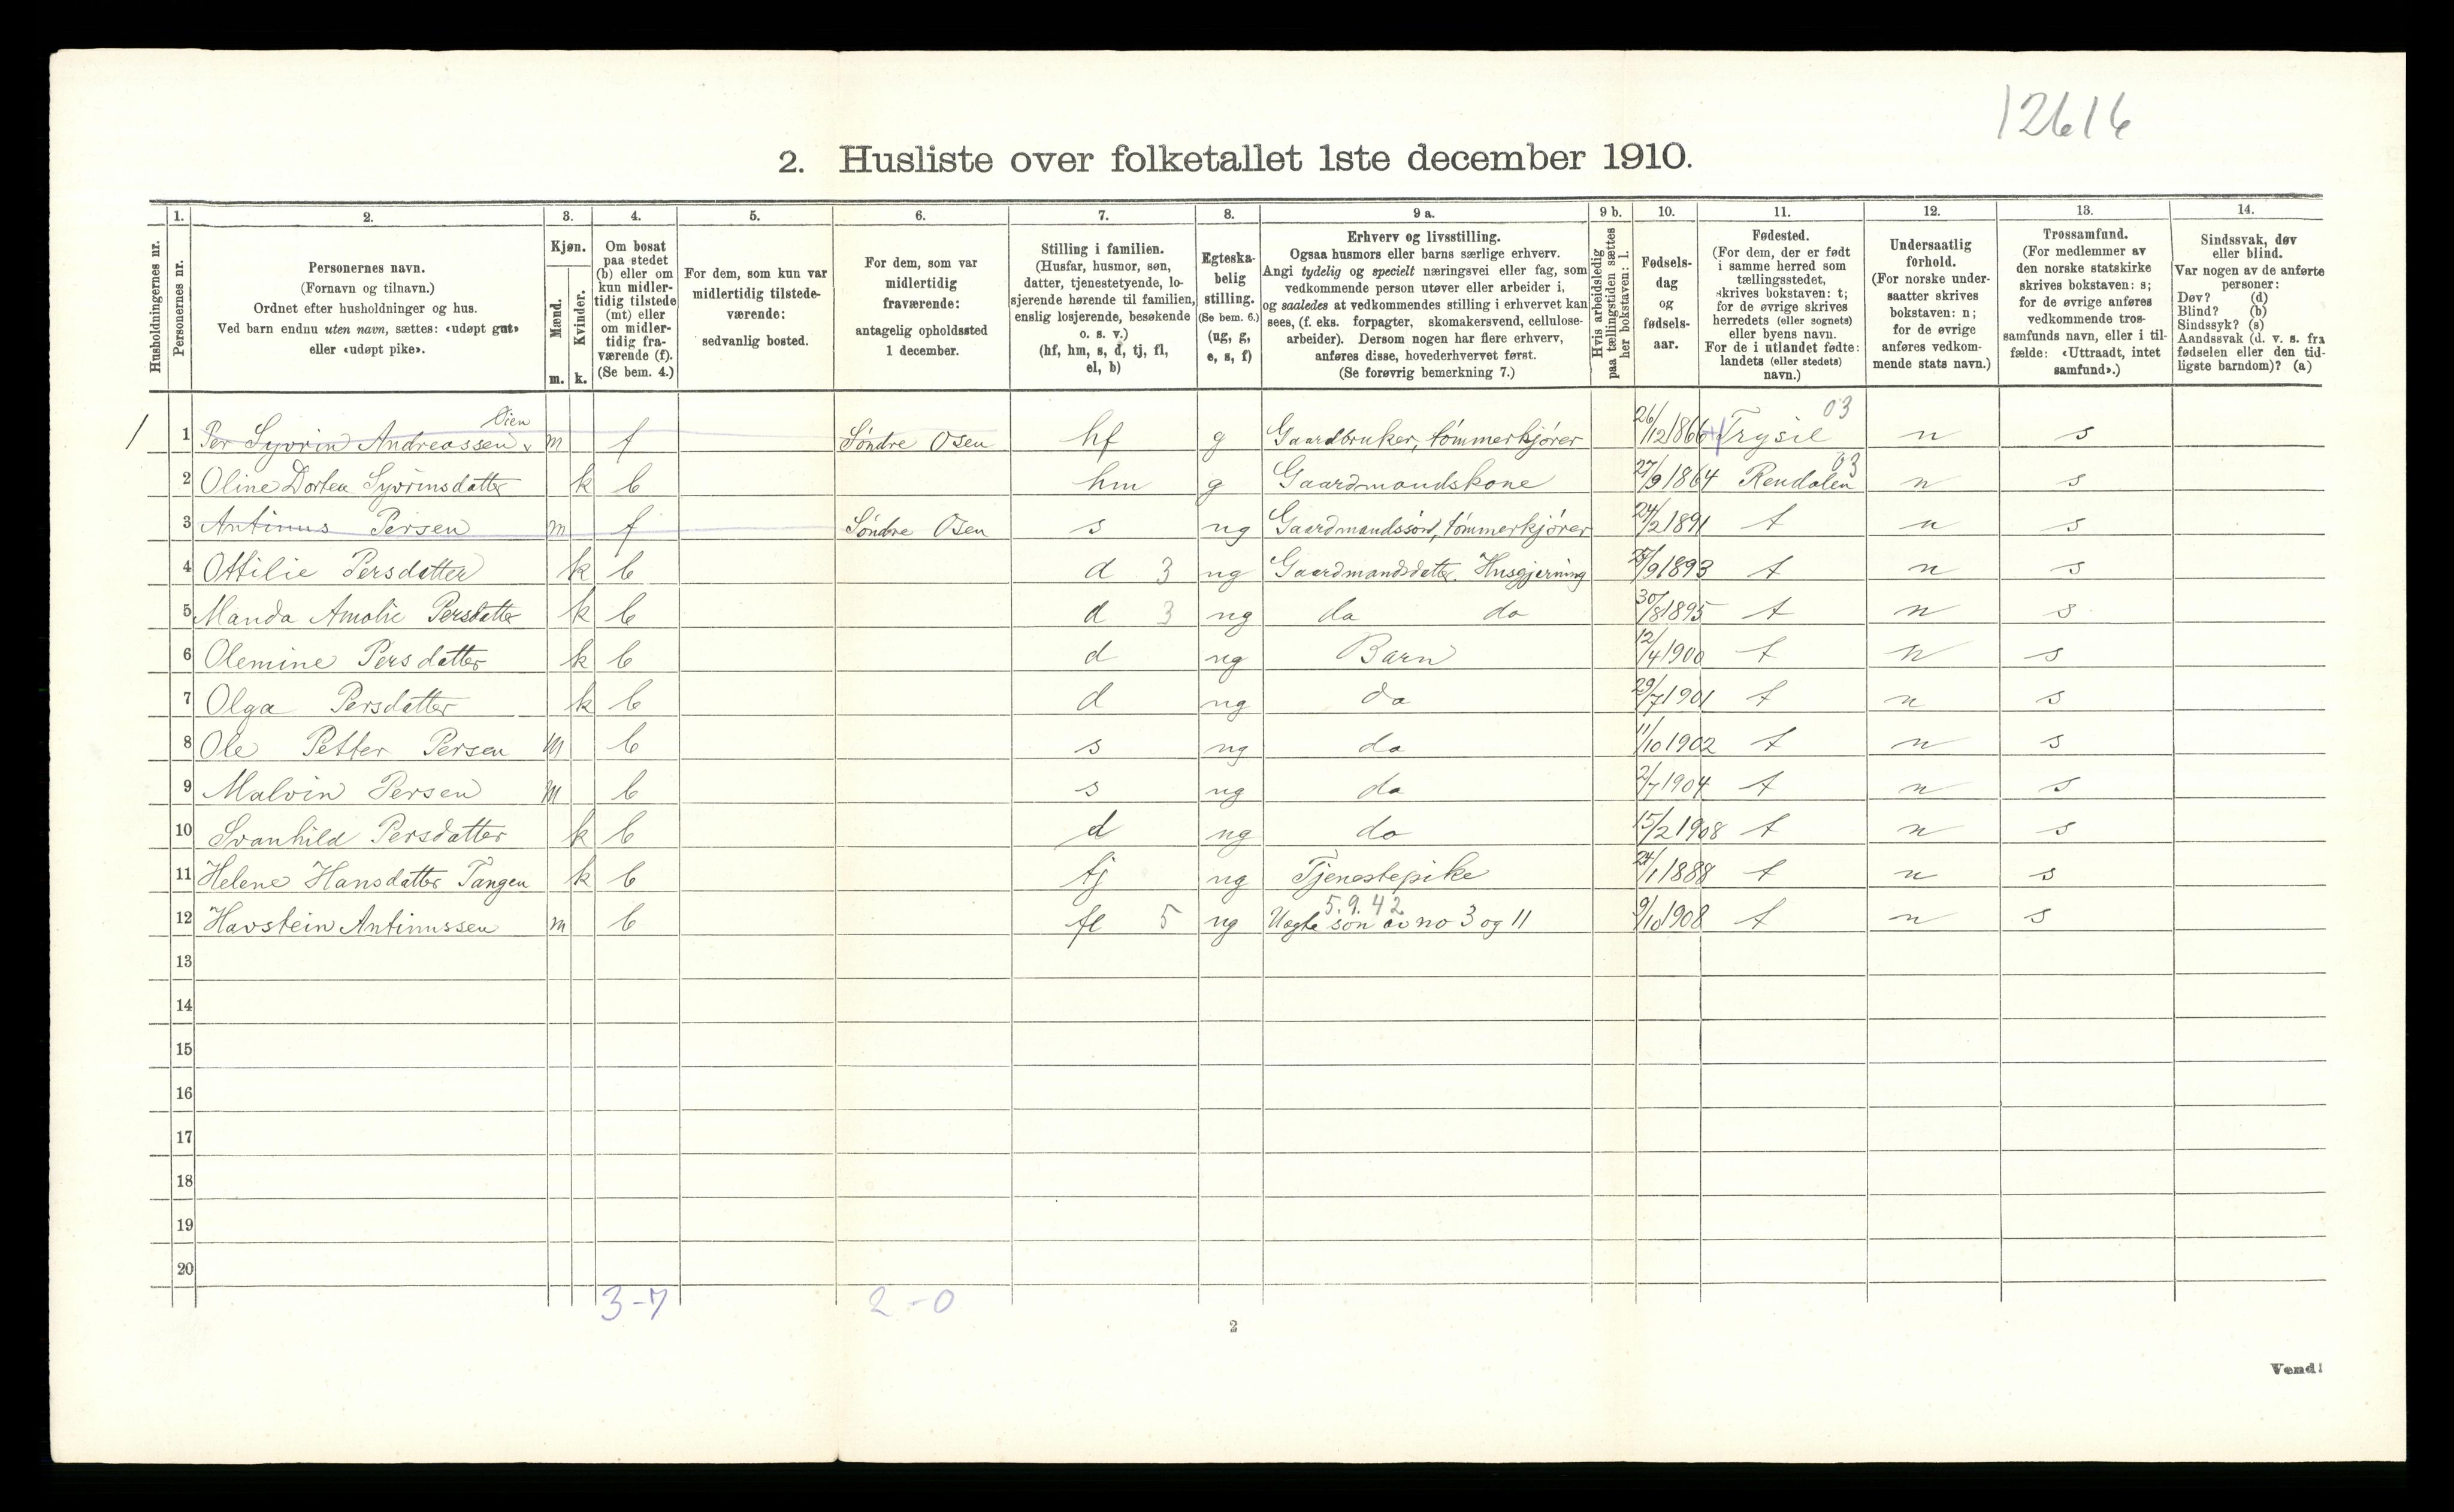 12616
2. Husliste over folketallet 1ste december 1910.
Husholdningernes nr.
1. Personernes nr.
2. Personernes navn. (Fornavn og tilnavn.) Ordnet efter husholdninger og hus. Ved barn endnu uten navn, sættes: «udøpt gut» eller «udøpt pike».
3. Kjøn. Mænd. m. Kvinder. k.
4. Om bosat paa stedet (b) eller om kun midlertidig tilstede (mt) eller om midlertidig fraværende (f). (Se bem. 4.)
5. For dem, som kun var midlertidig tilstedeværende: sedvanlig bosted.
6. For dem, som var midlertidig fraværende: antagelig opholdssted 1 december.
7. Stilling i familien. (Husfar, husmor, søn, datter, tjenestetyende, losjerende hørende til familien, enslig losjerende, besøkende o. s. v.) (hf, hm, s, d, tj, fl, el, b)
8. Egteskabelig stilling. (Se bem. 6.) (ug, g, e, s, f)
9 a. Erhverv og livsstilling. Ogsaa husmors eller barns særlige erhverv. Angi tydelig og specielt næringsvei eller fag, som vedkommende person utøver eller arbeider i, og saaledes at vedkommendes stilling i erhvervet kan sees, (f. eks. forpagter, skomakersvend, cellulosearbeider). Dersom nogen har flere erhverv, anføres disse, hovederhvervet først. (Se forøvrig bemerkning 7.)
9 b. Hvis arbeidsledig paa tællingstiden sættes her bokstaven: l.
10. Fødselsdag og fødselsaar.
11. Fødested. (For dem, der er født i samme herred som tællingsstedet, skrives bokstaven: t; for de øvrige skrives herredets (eller sognets) eller byens navn. For de i utlandet fødte: landets (eller stedets) navn.)
12. Undersaatlig forhold. (For norske undersaatter skrives bokstaven: n; for de øvrige anføres vedkommende stats navn.)
13. Trossamfund. (For medlemmer av den norske statskirke skrives bokstaven: s; for de øvrige anføres vedkommende trossamfunds navn, eller i tilfælde: «Uttraadt, intet samfund».)
14. Sindssvak, døv eller blind. Var nogen av de anførte personer: Døv? (d) Blind? (b) Sindssyk? (s) Aandssvak (d. v. s. fra fødselen eller den tidligste barndom)? (a)
1 1 Per Syvrin Andreassen Øien m f Søndre Osen hf g Gaardbruker, tømmerkjører 26/12 1866 Trysil 03 n s
2 Oline Dortea Syvrinsdatter k b hm g Gaardmandskone 27/9 1864 Rendalen 03 n s
3 Antinus Persen m f Søndre Osen s ug Gaardmandssøn, tømmerkjører 24/2 1891 t n s
4 Ottilie Persdatter k b d 3 ug Gaardmandsdatter. Husgjerning /9 1893 t n s
5 Manda Amalie Persdatter k b d 3 ug do do 30/8 1895 t n s
6 Olemine Persdatter k b d ug Barn 12/4 1900 t n s
7 Olga Persdatter k b d ug do 29/7 1901 t n s
8 Ole Petter Persen m b s ug do 11/10 1902 t n s
9 Malvin Persen m b s ug do 2/7 1904 t n s
10 Svanhild Persdatter k b d ug do 15/2 1908 t n s
11 Helene Hansdatter Tangen k b tj ug Tjenestepike 24/1 1888 t n s
12 Havstein Antinussen m b fl 5 ug 5.9.42 Uegte søn av no 3 og 11 9/10 1908 t n s
13
14
15
16
17
18
19
20
3-7 2-0
2
Vend!